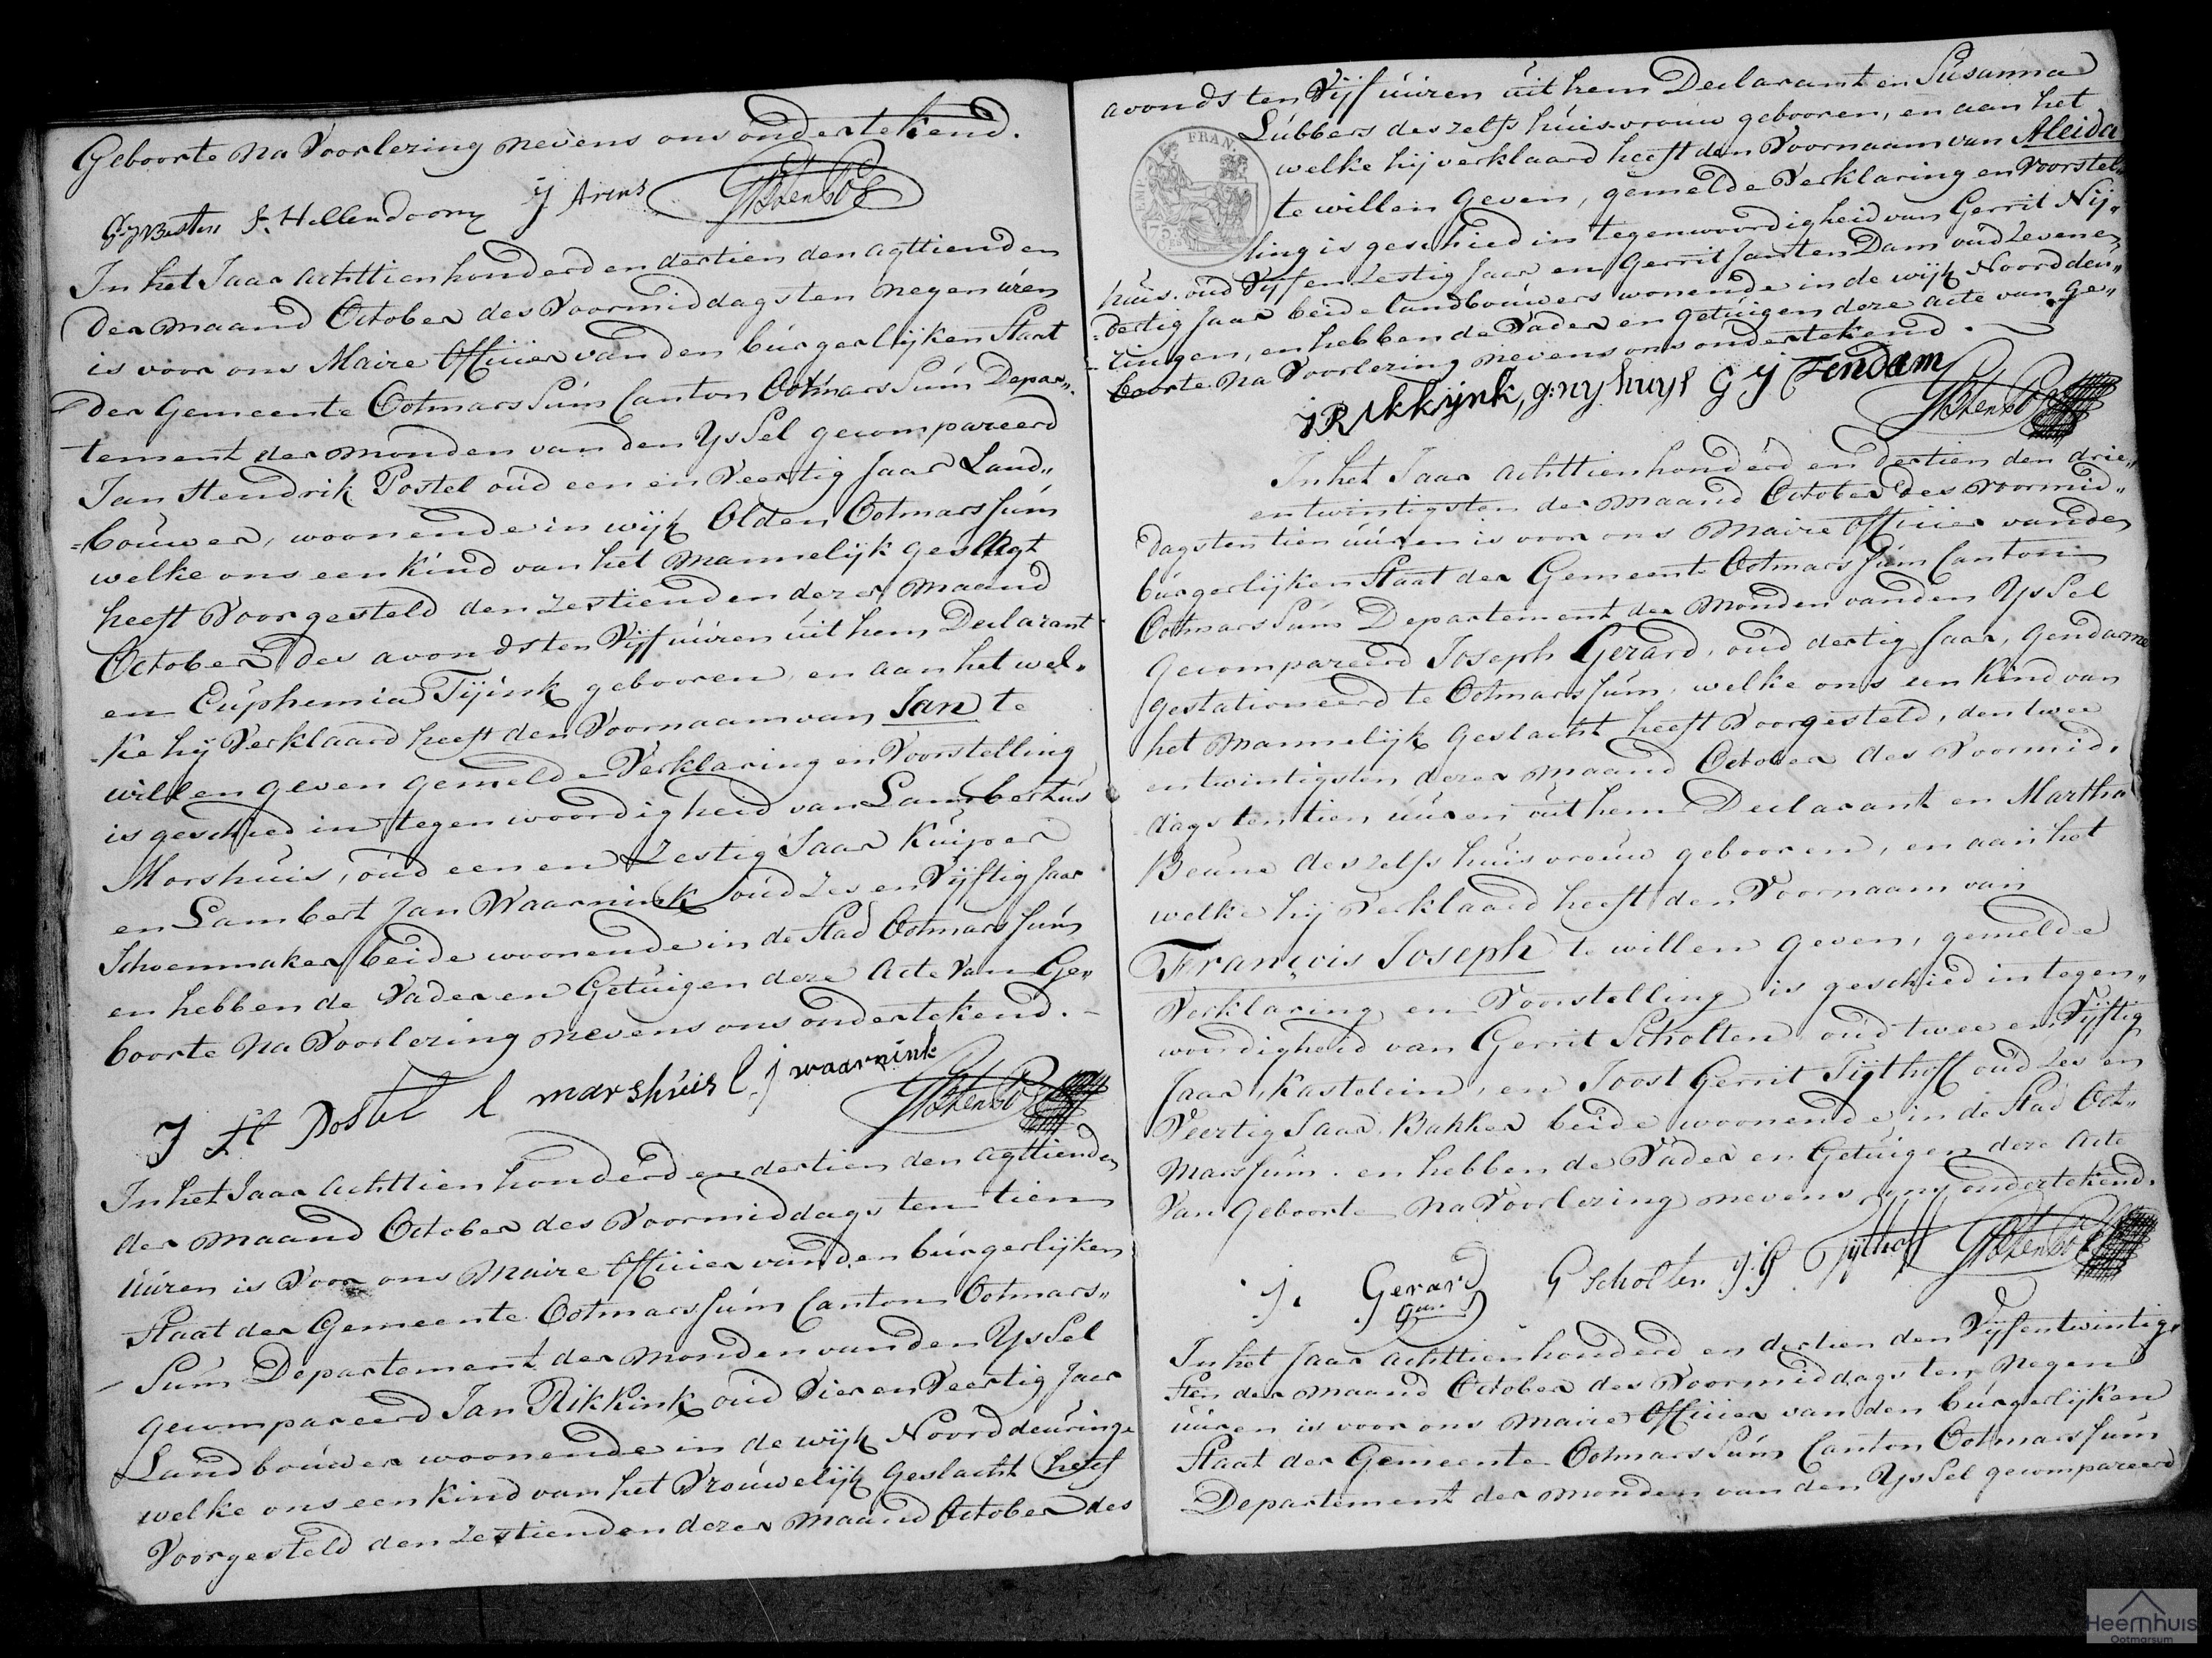 Geboorte Na Voorlezing nevens ons ondertekend.
G J Besten J. Hellendoorn J Arens
In het Jaar achttienhonderd en dertien den agttienden
der maand October des Voormiddags ten negen uren
is voor ons Maire Officier van den burgerlijken Staat
der Gemeente Ootmarssúm Canton Ootmarssúm Depar„
tement der monden van den Yssel gecompareerd
Jan Hendrik Postel oud een en Veertig Jaar Land„
=bouwer, woonende in wijk Olden Ootmarssúm
welke ons een kind van het Mannelijk geslagt
heeft Voorgesteld den zestienden dezer maand
October des avonds ten Vijf úúren uit hem Declarant
en Euphemia Tijink gebooren, en aan het wel„
ke hij Verklaard heeft den Voornaam van Jan te
willen geven gemelde Verklaring en Voorstelling
is geschied in tegenwoordigheid van Lambertus
Morshuis, oud een en Zestig Jaar Kuiper
en Lambert Jan Waarnink oud Zes en Vijftig Jaar
Schoenmaker beide woonende in de Stad Ootmarssum
en hebben de Vader en Getuigen deze Acte van Ge„
boorte Na Voorlezing nevens ons ondertekend. –
J H Postel l marshuis l. j waarnink
In het Jaar achttienhonderd en dertien den agttienden
der maand October des Voormiddags ten tien
úúren is Voor ons Maire Officier van den burgerlijken
Staat der Gemeente Ootmarssúm Canton Ootmars„
Súm Departement der monden van den Yssel
gecompareerd Jan Rikkink oud Vier en Veertig Jaar
Landbouwer woonende in de wijk Noorddeuringe
welke ons een kind van het Vrouwelijk Geslacht heef
Voorgesteld den zestienden dezer maand October des
avonds ten Vijf úúren uit hem Declarant en Susanna
Lubbers deszelfs huisvrouw gebooren, en aan het
FRAN.
welke hij verklaard heeft den Voornaam van Aleida
te willen Geven, gemelde Verklaring en Voorstel„
75
ling is geschied in tegenwoordigheid van Gerrit Nij„
huis oud Vijf en Zestig Jaar en Gerrit Jan ten Dam oud Zeven en
dertig Jaar beide landbouwers wonende in de wijk Noordden„
=ringen, en hebben de Vader en getuigen deze acte van Ge„
boorte Na Voorlezing nevens ons ondertekend.
j Rikkijnk, g: ny huys G J Tendam
In het Jaar achttienhonderd en dertien den drie„
entwintigsten der maand October des Voormid„
dags ten tien úúren is voor ons Maire Officier van den
burgerlijken Staat der Gemeente Ootmarssum Canton
Ootmarssúm Departement der Monden van den Yssel
gecompareerd Joseph Gerard, oud dertig Jaar, Gendarme
gestationneerd te Ootmarssum, welke ons een kind van
het Mannelijk Geslacht heeft Voorgesteld, den twee
entwintigsten dezer maand October des Voormid„
dags ten tien uuren uit hem Declarant en Martha
Beune deszelfs huisvrouw gebooren, en aan het
welke hij Verklaard heeft den Voornaam van
François Joseph te willen geven, gemelde
Verklaring en Voorstelling is geschied in tegen„
woordigheid van Gerrit Scholten oud twee en Vijftig
Jaar, Kastelein, en Joost Gerrit Tijthoff oud Zes en
Veertig Jaar Bakker beide woonende in de Stad Oot„
marssum. en hebben de Vader en Getuigen deze Acte
Van Geboorte Na Voorlezing nevens ons ondertekend.
J. Gerard G Scholten J. G Tijthoff
In het Jaar achttienhonderd en dertien den Vijfentwintig„
sten der maand October des Voormiddags ten negen
úúren is voor ons Maire Officier van den burgerlijken
Staat der Gemeente Ootmarssúm Canton Ootmarssum
Departement der monden van den Yssel gecompareerd
Heemhuis
Ootmarsum